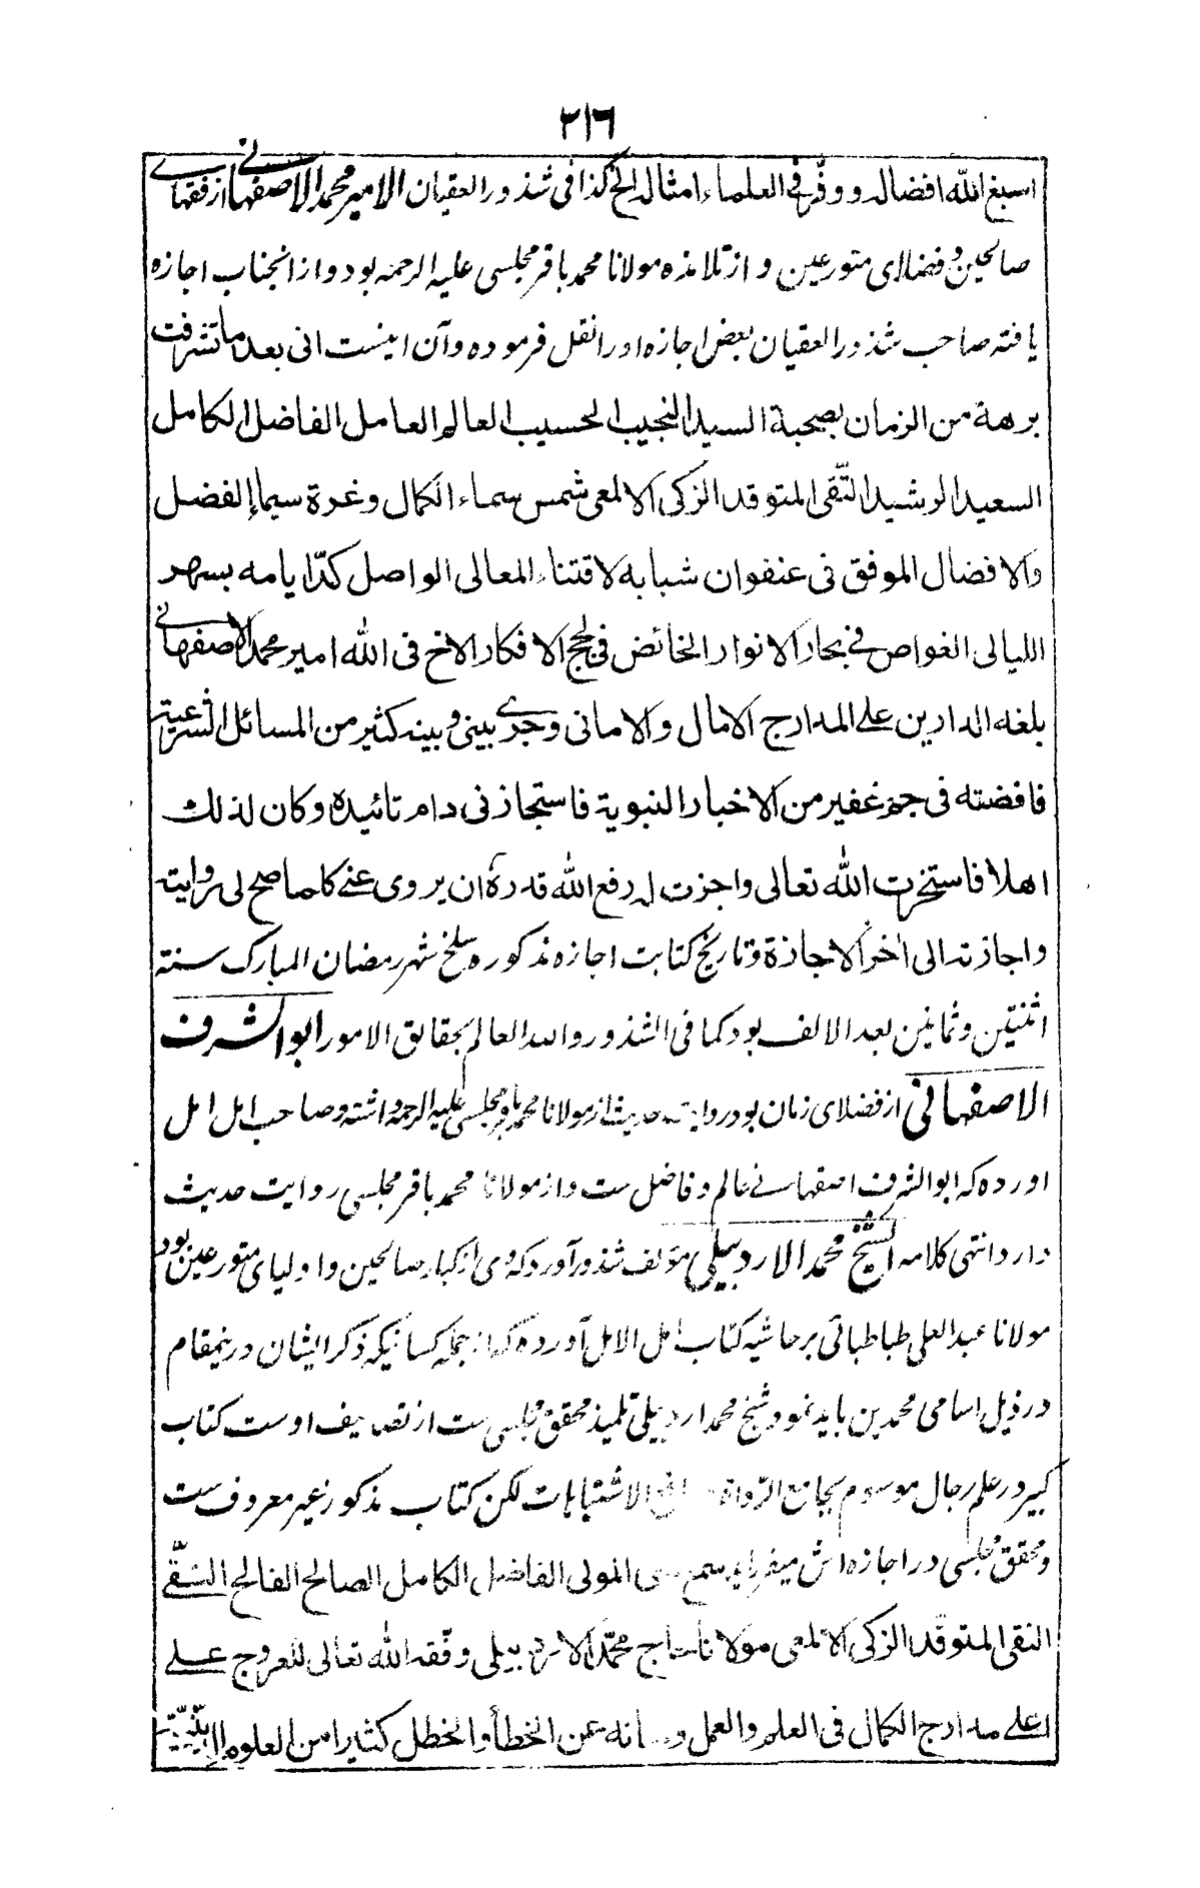 ٣١٦
اسبغ الله افضاله ووفّر فی العلماء امثاله الخ کذا فی شذور العقیان الامیر محمد الاصفهانی از فقهای
صالحین و فضلای متورعین و از تلامذه مولانا محمد باقر مجلسی علیه الرحمه بود و از انجناب اجازه
یافته صاحب شذور العقیان بعض اجازه او را نقل فرموده و آن اینست انی بعد ما تشرفت
برهة من الزمان بصحبة السید النجیب الحسیب العالم العامل الفاضل الکامل
السعید الرشید التّقی المتوقد الزکی الالمعی شمس سماء الکمال وغرة سیماء الفضل
والافضال الموفق فی عنفوان شبابه لاقتناء المعالی الواصل کدّ ایامه بسهر
اللیالی الغواص فی بحار الانوار الخائض فی لجج الافکار الاخ فی الله امیر محمد الاصفهانی
بلغه الدارین علی المدارج الامال والامانی وجری بینی وبینه کثیر من المسائل الشرعیة
فافضته فی جم غفیر من الاخبار النبویة فاستجازنی دام تائیده وکان لذلک
اهلا فاستخرت الله تعالی واجزت له رفع الله قدره ان یروی عنی کلما صح لی روایته
واجازته الی آخر الاجازة و تاریخ کتابت اجازه مذکوره سلخ شهر رمضان المبارک سنته
اثنتین وثمانین بعد الالف بود کما فی الشذور والله العالم بحقایق الامور ابو الشرف
الاصفهانی از فضلای زمان بود روایت حدیث از مولانا محمد باقر مجلسی علیه الرحمه داشته و صاحب امل امل
اورده که ابو الشرف اصفهانی عالم و فاضل ست و از مولانا محمد باقر مجلسی روایت حدیث
دارد انتهی کلامه الشیخ محمد الاردبیلی مؤلف شذور آورد که وی از کبار صالحین و اولیای متورعین بود
مولانا عبد العلی طباطبائی بر حاشیه کتاب امل الامل آورده که از جمله کسانیکه ذکر ایشان درینمقام
در ذیل اسامی محمد بن باید نمود شیخ محمد اردبیلی تلمیذ محقق مجلسی ست از تصانیف اوست کتاب
کبیر در علم رجال موسوم بجامع الرّواة رافع الاشتباهات لکن کتاب مذکور غیر معروف ست
و محقق مجلسی در اجازه اش میفرماید سمع منی المولی الفاضل الکامل الصالح الفالح التّقی
النقی المتوقد الزکی الالمعی مولانا حاج محمّد الاردبیلی وفّقه الله تعالی للعروج علی
اعلی مدارج الکمال فی العلم والعمل وصانه عن الخطأ والخطل کثیرا من العلوم الدّینیّة